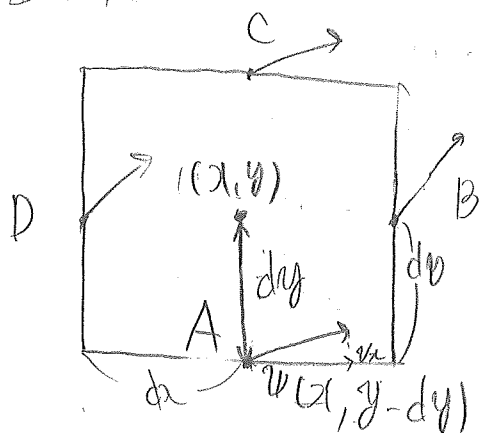 C
(x, y)
D
B
dy
dy
A
vx
dx
V(x, y-dy)